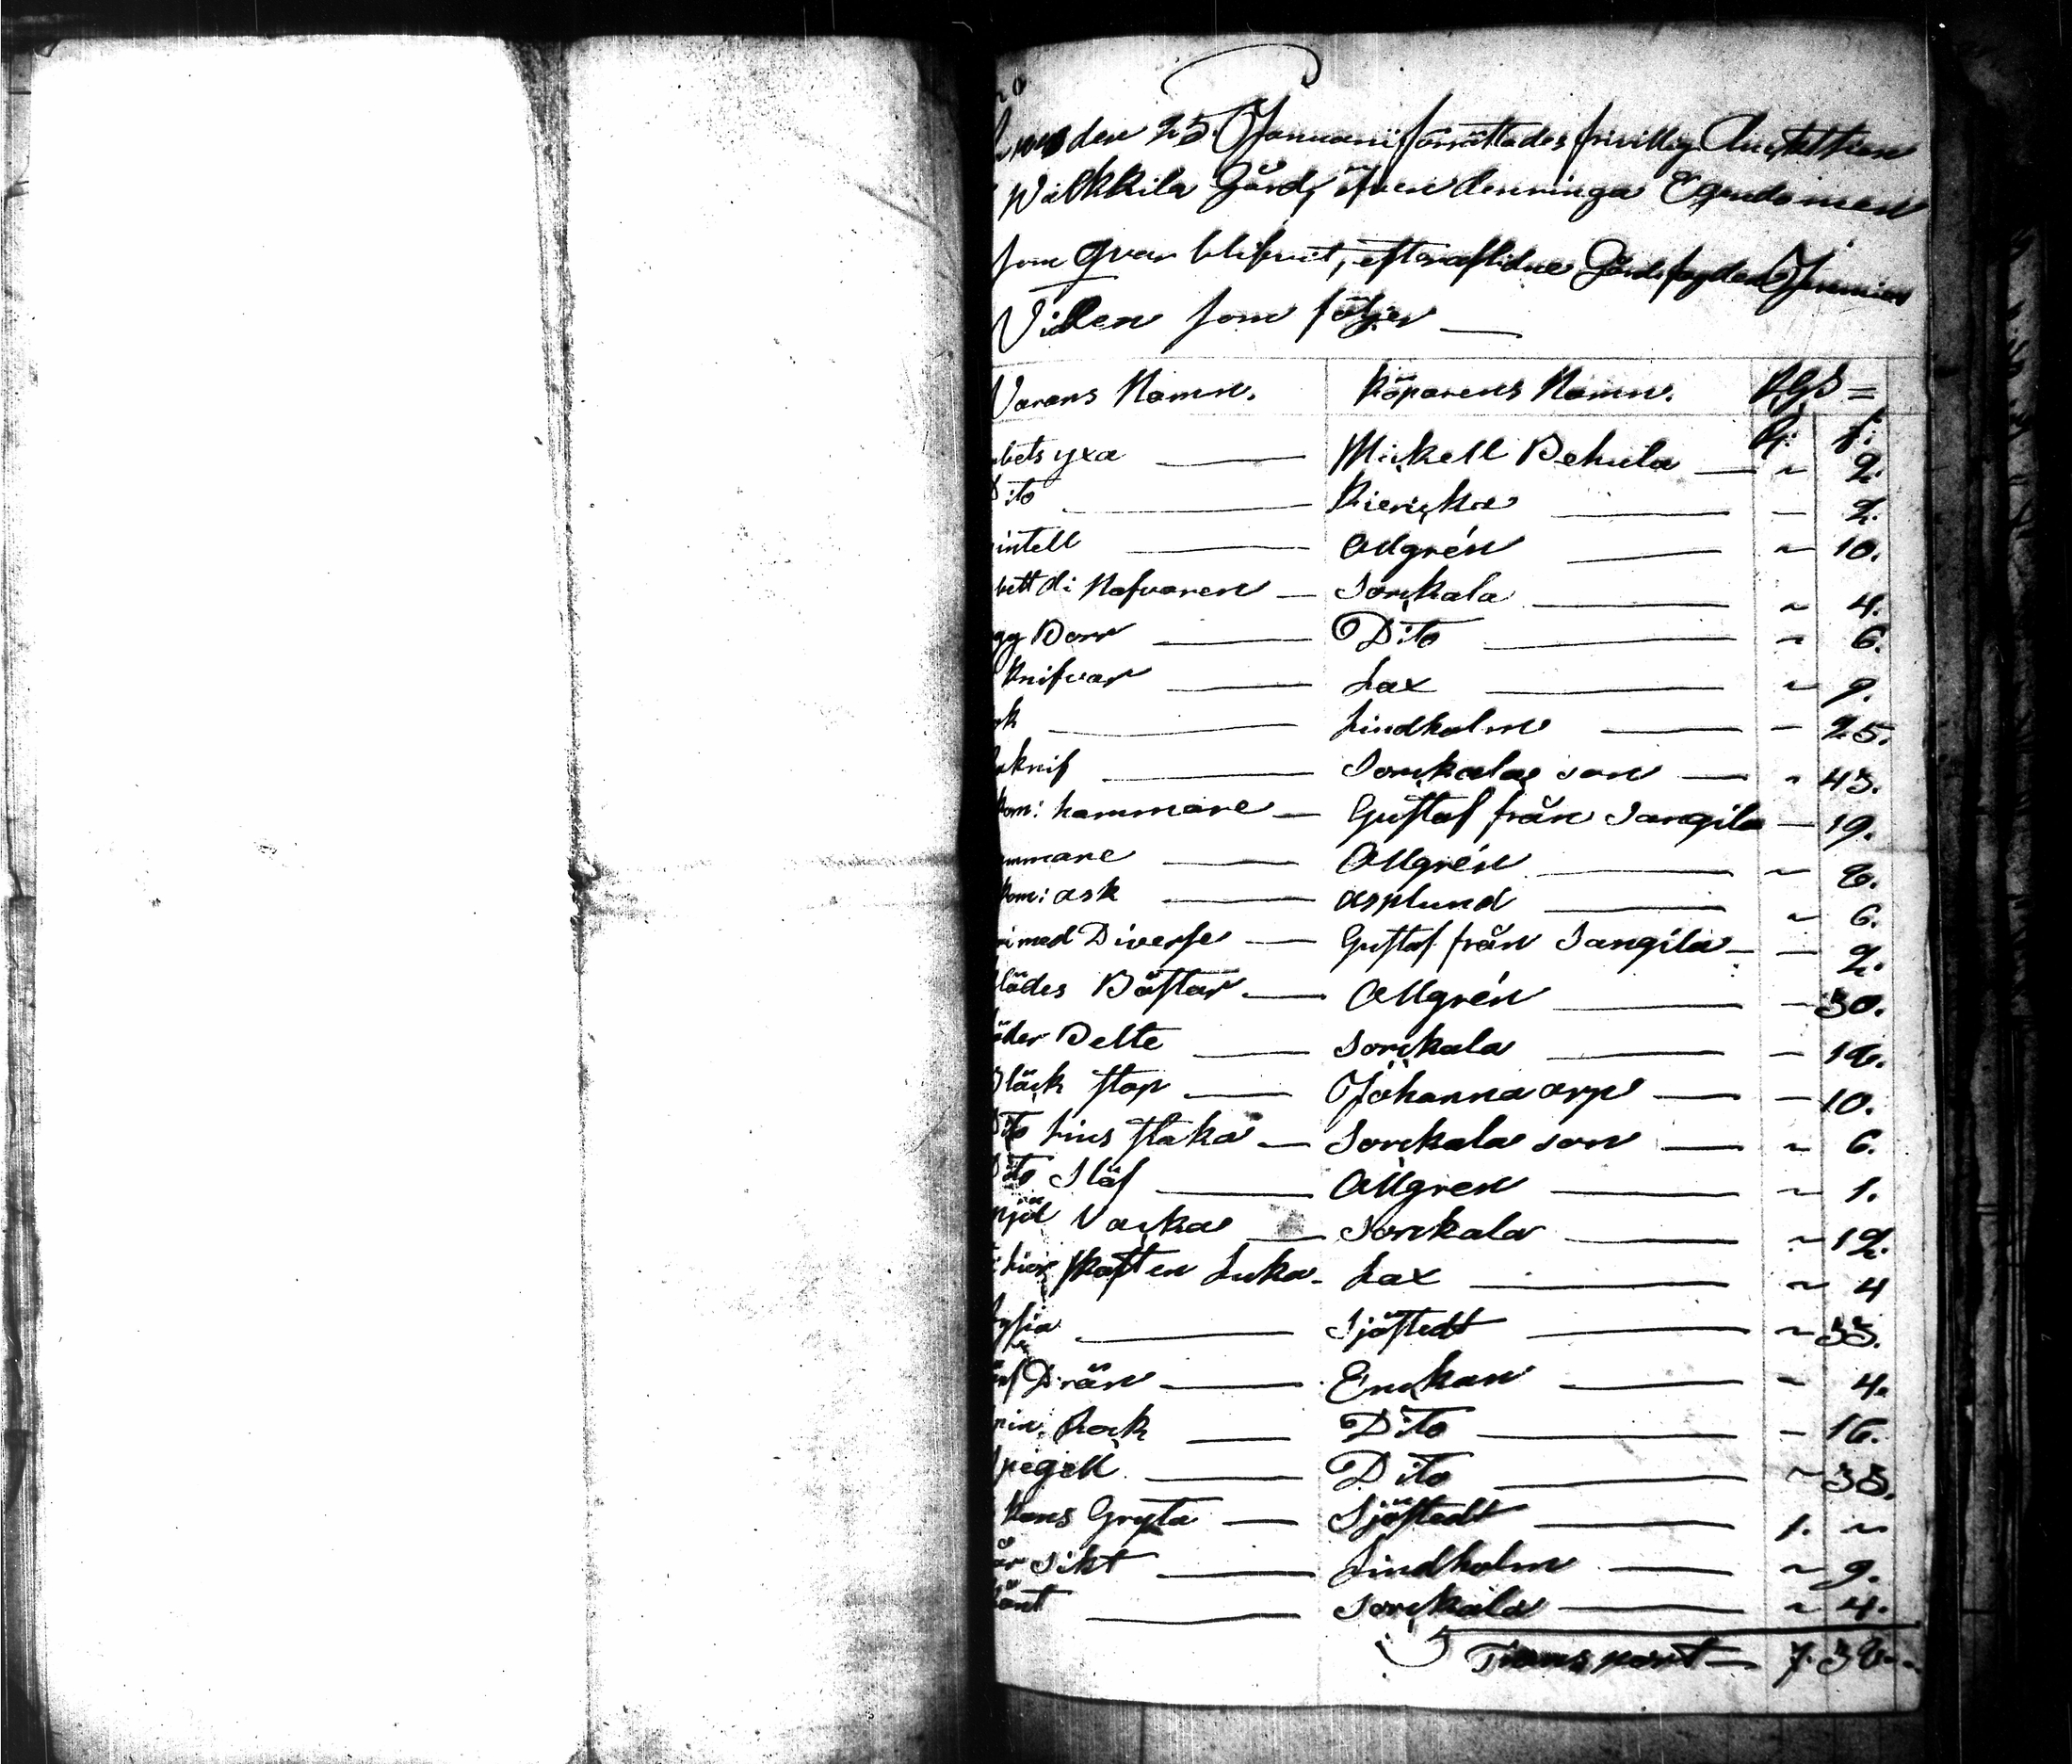 den 25 Januarii förrättades frivillig Auktion
Walkkila Gård, öfven denninga Egendomen
som qvar blifvit, efter aflidne Gårdsfogden Jeremias
Widen som följer
Varans Namn. Köparens Namn. RGS
R: k:
bets yxa Mickell Pehula ~ 2.
Dito Kiericka — 2.
intell Allgrén ~ 10.
bett di Nafvaren Sorckala ~ 4.
gg Borr Dito ~ 6.
Knifvar Lax ~ 9.
ok Lindholm — 25.
knif Sorckalas son ~ 43.
hammare Gustaf från Sangila — 19.
ammare Allgrén ~ 6.
ask Asplund ~ 6.
med Diverse Gustaf från Sangila — 2.
lädes Båstar Allgrén — 30.
äder Belte Sorckala — 16.
Bläck stop Johanna arp — 10.
Dito Lius staka Sorckala son ~ 6.
Dito Slöf Allgren ~ 1.
Vacka Sorckala ~ 12.
skaft en Luka Lax ~ 4
Sjöstedt ~ 33.
Drän Enckan — 4.
Rock Dito — 16.
spegell Dito ~ 33.
Kans Gryta Sjöstedt 1. ~
år Sikt Lindholm ~ 9.
Sorckala ~ 4.
Transport 7. 38.